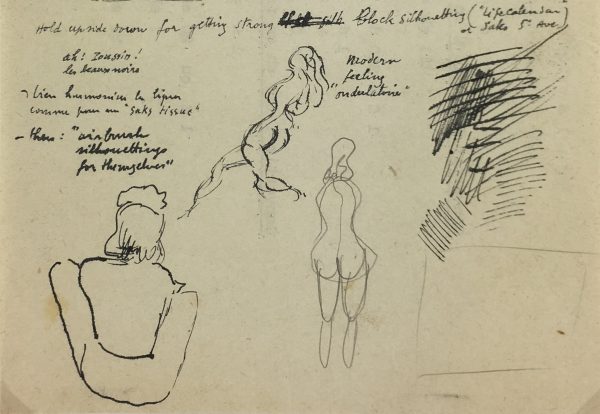 Hold upside down for getting strong Block silhouetting ("Life Calendar"
or Saks 5th Ave)
ah! Zoussio!
les beaux noirs
Modern
feeling
"ondulatoire"
bien harmoniser les lignes
comme pour un "Saks tissue"
- then: "airbrush
silhouettings
for themselves"